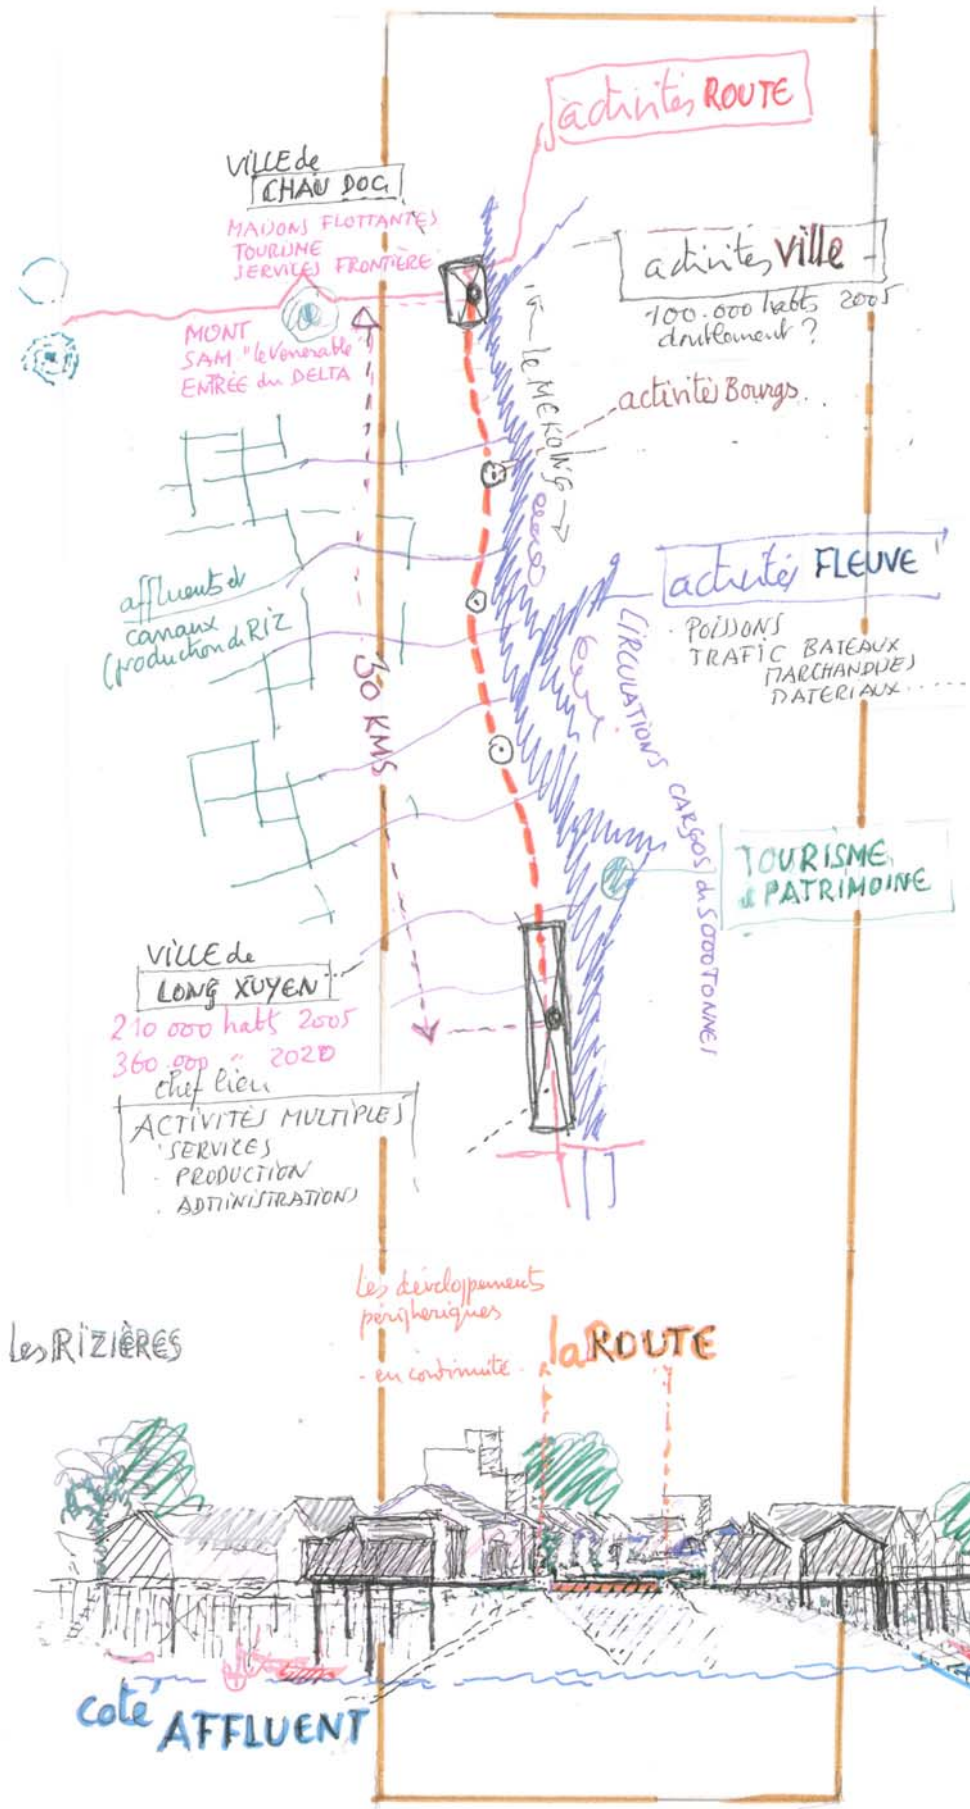 activités ROUTE
VILLE de
CHAU DOC
MAISONS FLOTTANTES
TOURISME
SERVICES FRONTIÈRE
activités ville
100.000 habts 2005
doublement ?
MONT
SAM "le Vénérable"
ENTRÉE du DELTA
← le MEKONG →
activités Bourgs
affluents et
canaux
(production du RIZ
30 KMS
activités FLEUVE
POISSONS
TRAFIC BATEAUX
MARCHANDISES
MATERIAUX.....
CIRCULATIONS CARGOS de 5000 TONNES
TOURISME
et PATRIMOINE
VILLE de
LONG XUYEN
210 000 habts 2005
360.000 " 2020
chef lieu
ACTIVITÉS MULTIPLES
SERVICES
. PRODUCTION
. ADMINISTRATIONS
Les développements
périphériques
- en continuité -
la ROUTE
les RIZIÈRES
coté AFFLUENT